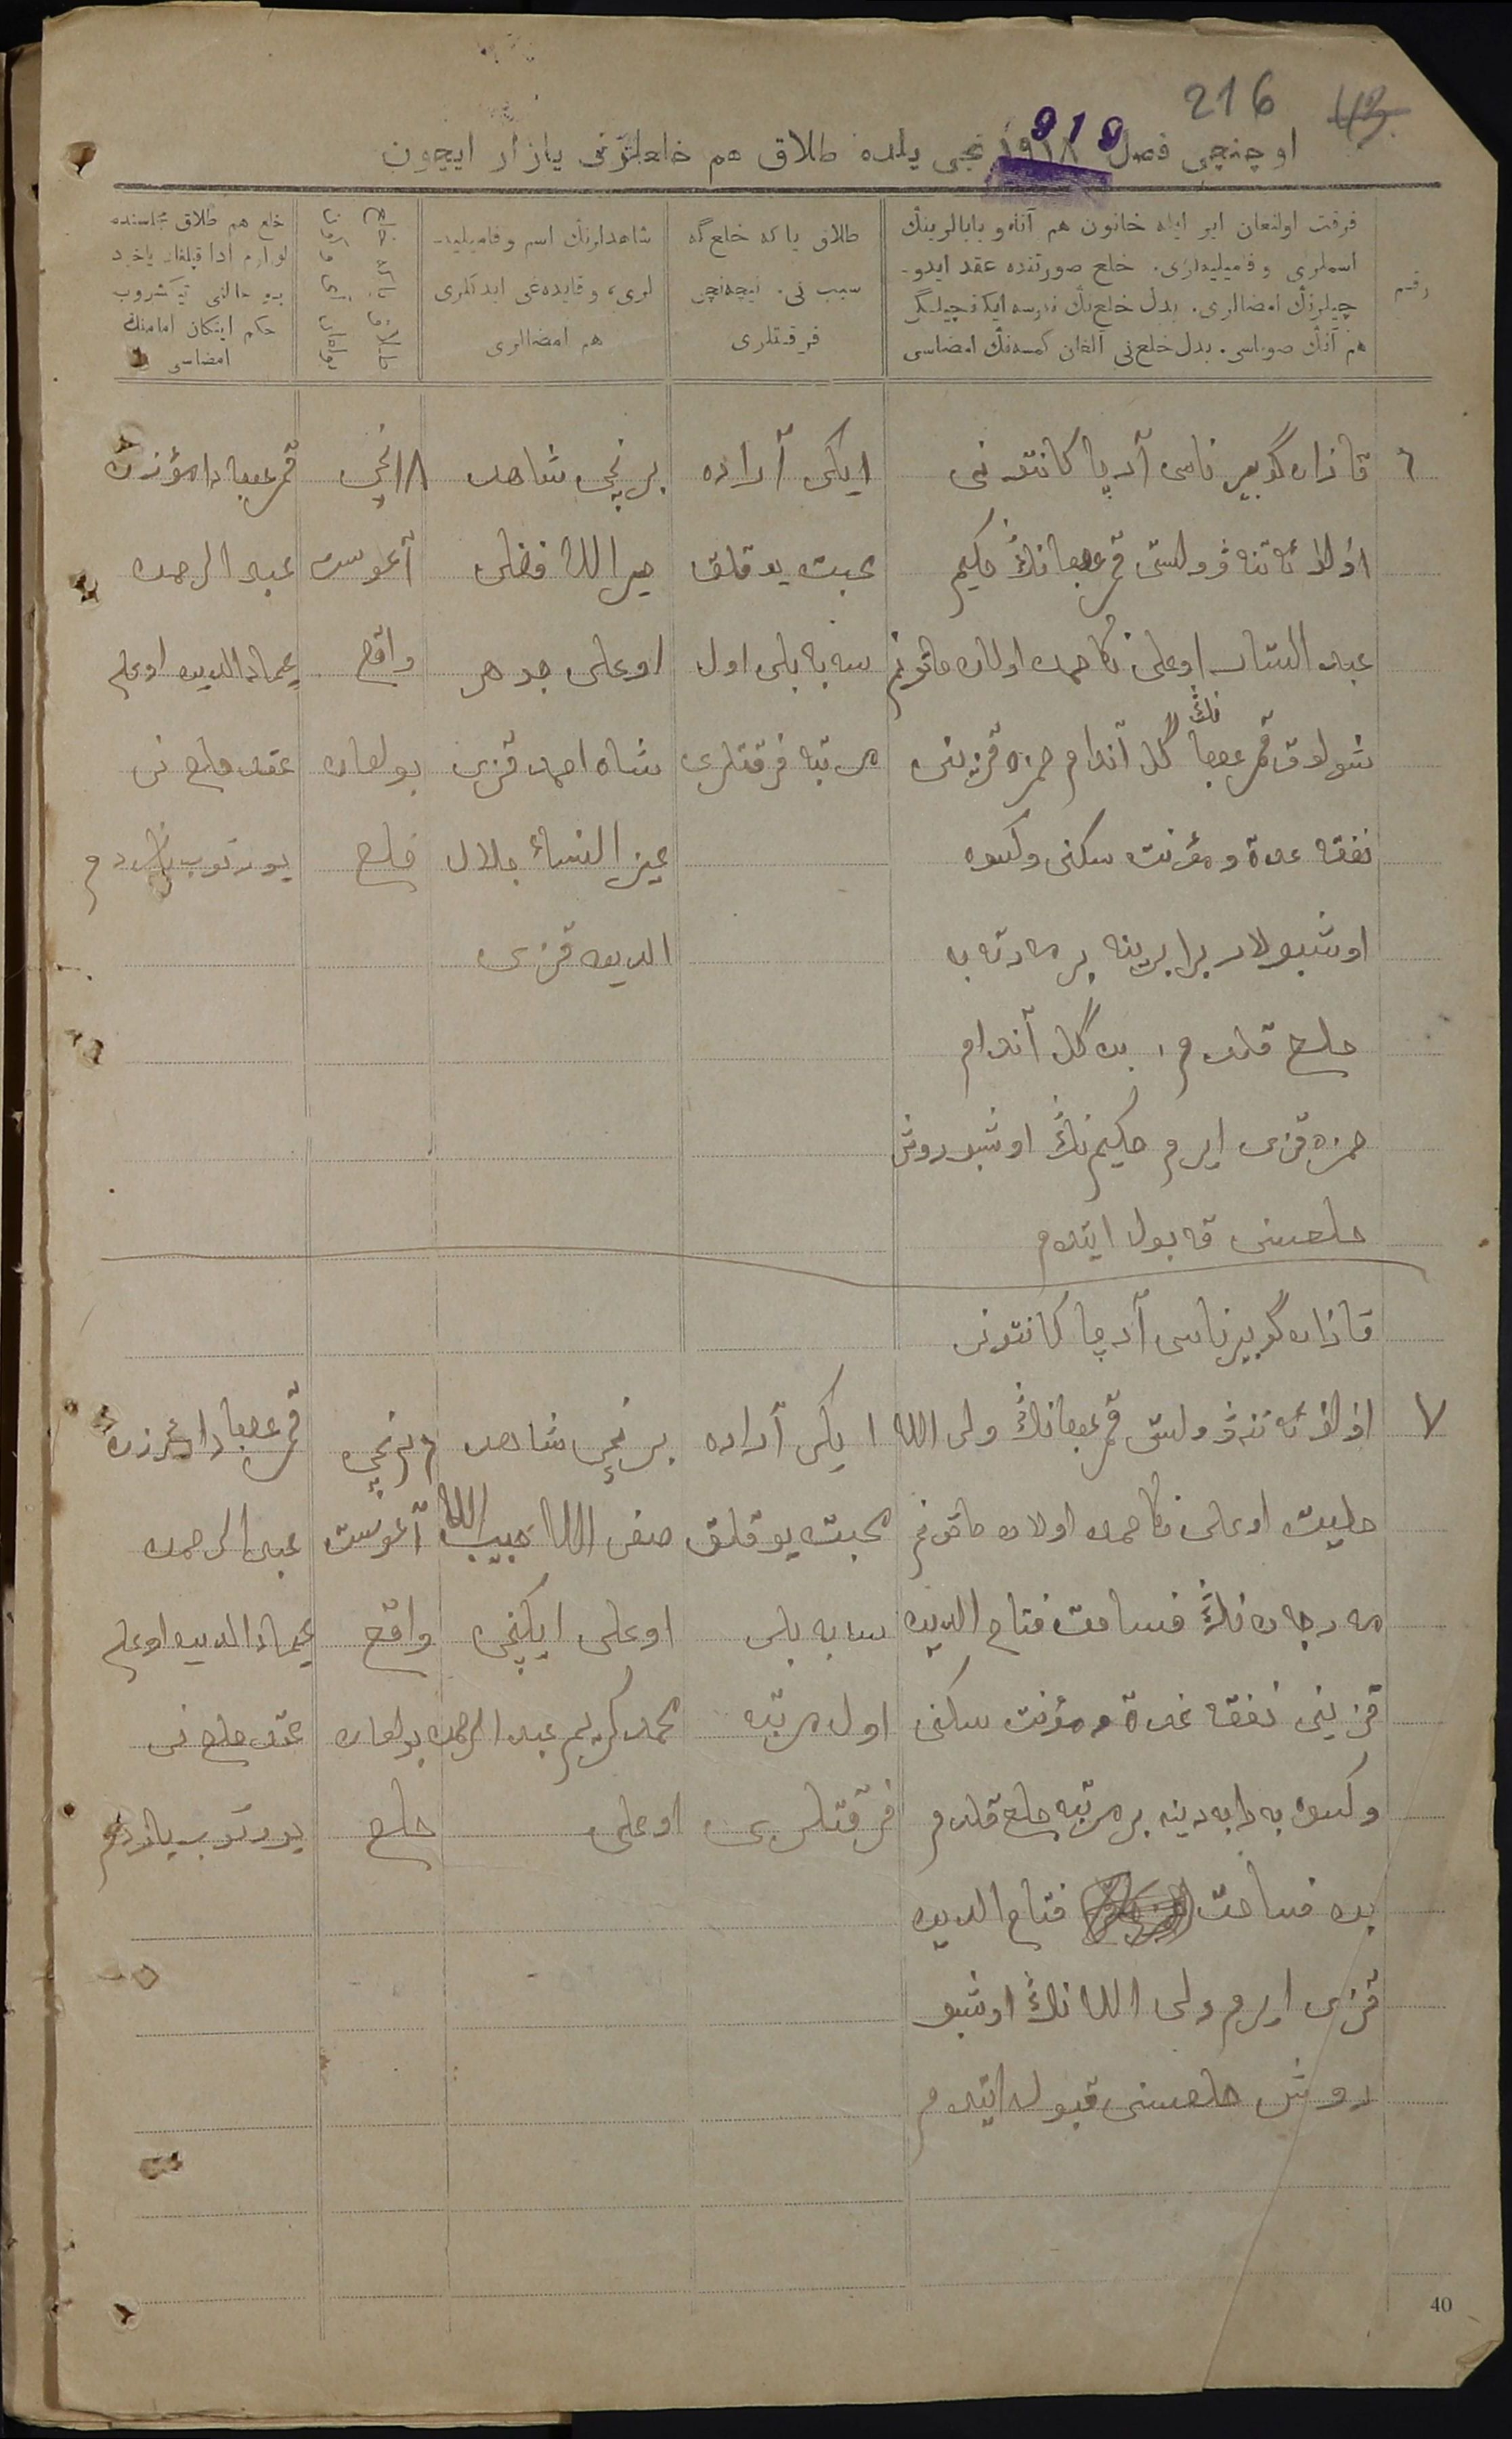 216
43
اوچنچی فصل ١٩١٨ 919 نچی یلده طلاق هم خلعلرنی یازار ایچون
رقم
فرقت اولنغان ایر ایله خاتون هم آناو بابالرینڭ
اسملری و فامیلیه‌لری. خلع صورتنده عقد ایدو-
چیلرنڭ امضالری. بدل خلع‌نڭ نرسه ایکانچیلگی
هم آنڭ صوماسی. بدل خلع‌نی آلغان کمسه‌نڭ امضاسی
طلاق یا که خلع گه
سبب نی. نیچه‌نچی
فرقتلری
شاهدلرنڭ اسم و فامیلیه-
لری، و قایده‌غی ایدکلری
هم امضالری
طلاق یا که خلع
خلع هم طلاق مجلسنده
لوازم ادا قیلغان یاخود
بو حالنی تیکشروب
حکم ایتکان امامنڭ
امضاسی
٦
قازان گوبیرناسی آرچا کانتونی
قزینی
اولاد
عبد الستار اوغلی نکاحمده اولان خاتونم
شولوق گل آندام حمزه قزینی
نڭ
نفقه عدة و مؤنت سکنی و کسوه
اوشبولار برابرینه بر مرتبه
خلع قلدم، بن گل آندام
حمزه قزی ایرم حکیم‌نڭ اوشبو روش
خلعسنی قبول ایتدم
ایکی آراده
محبت یوقلق
سببلی اول
مرتبه فرقتلری
برنچی شاهد
خیر الله فضلی
اوغلی جوهر
شاه احمد قزی
عین النساء جلال
الدین قزی
١٨نچی
آغوست
واقع
بولغان
خلع
مؤذن
عبد الرحمن
عماد الدین اوغلی
عقد خلع نی
یورتوب یازدم
قازان گوبیرناسی آرچا کانتونی
٧
ولی الله
اوغلی نکاحمده اولان خاتونم
مرجان‌نڭ فصاحت فتاح الدین
قزینی نفقه عدة و مؤنت سکنی
و کسوه برابرینه بر مرتبه خلع قلدم
بن فصاحت فتاح الدین
قزی ایرم ولی الله نڭ اوشبو
روش خلعسنی قبول ایتدم
ایکی آراده
محبت یوقلق
سببلی
اول مرتبه
فرقتلری
برنچی شاهد
صفی الله حبیب الله
اوغلی ایکنچی
محمد کریم عبد الرحمن
اوغلی
نچی
آغوست
واقع
بولغان
خلع
مؤذن
عبد الرحمن
عماد الدین اوغلی
عقد خلع نی
یورتوب یازدم
40